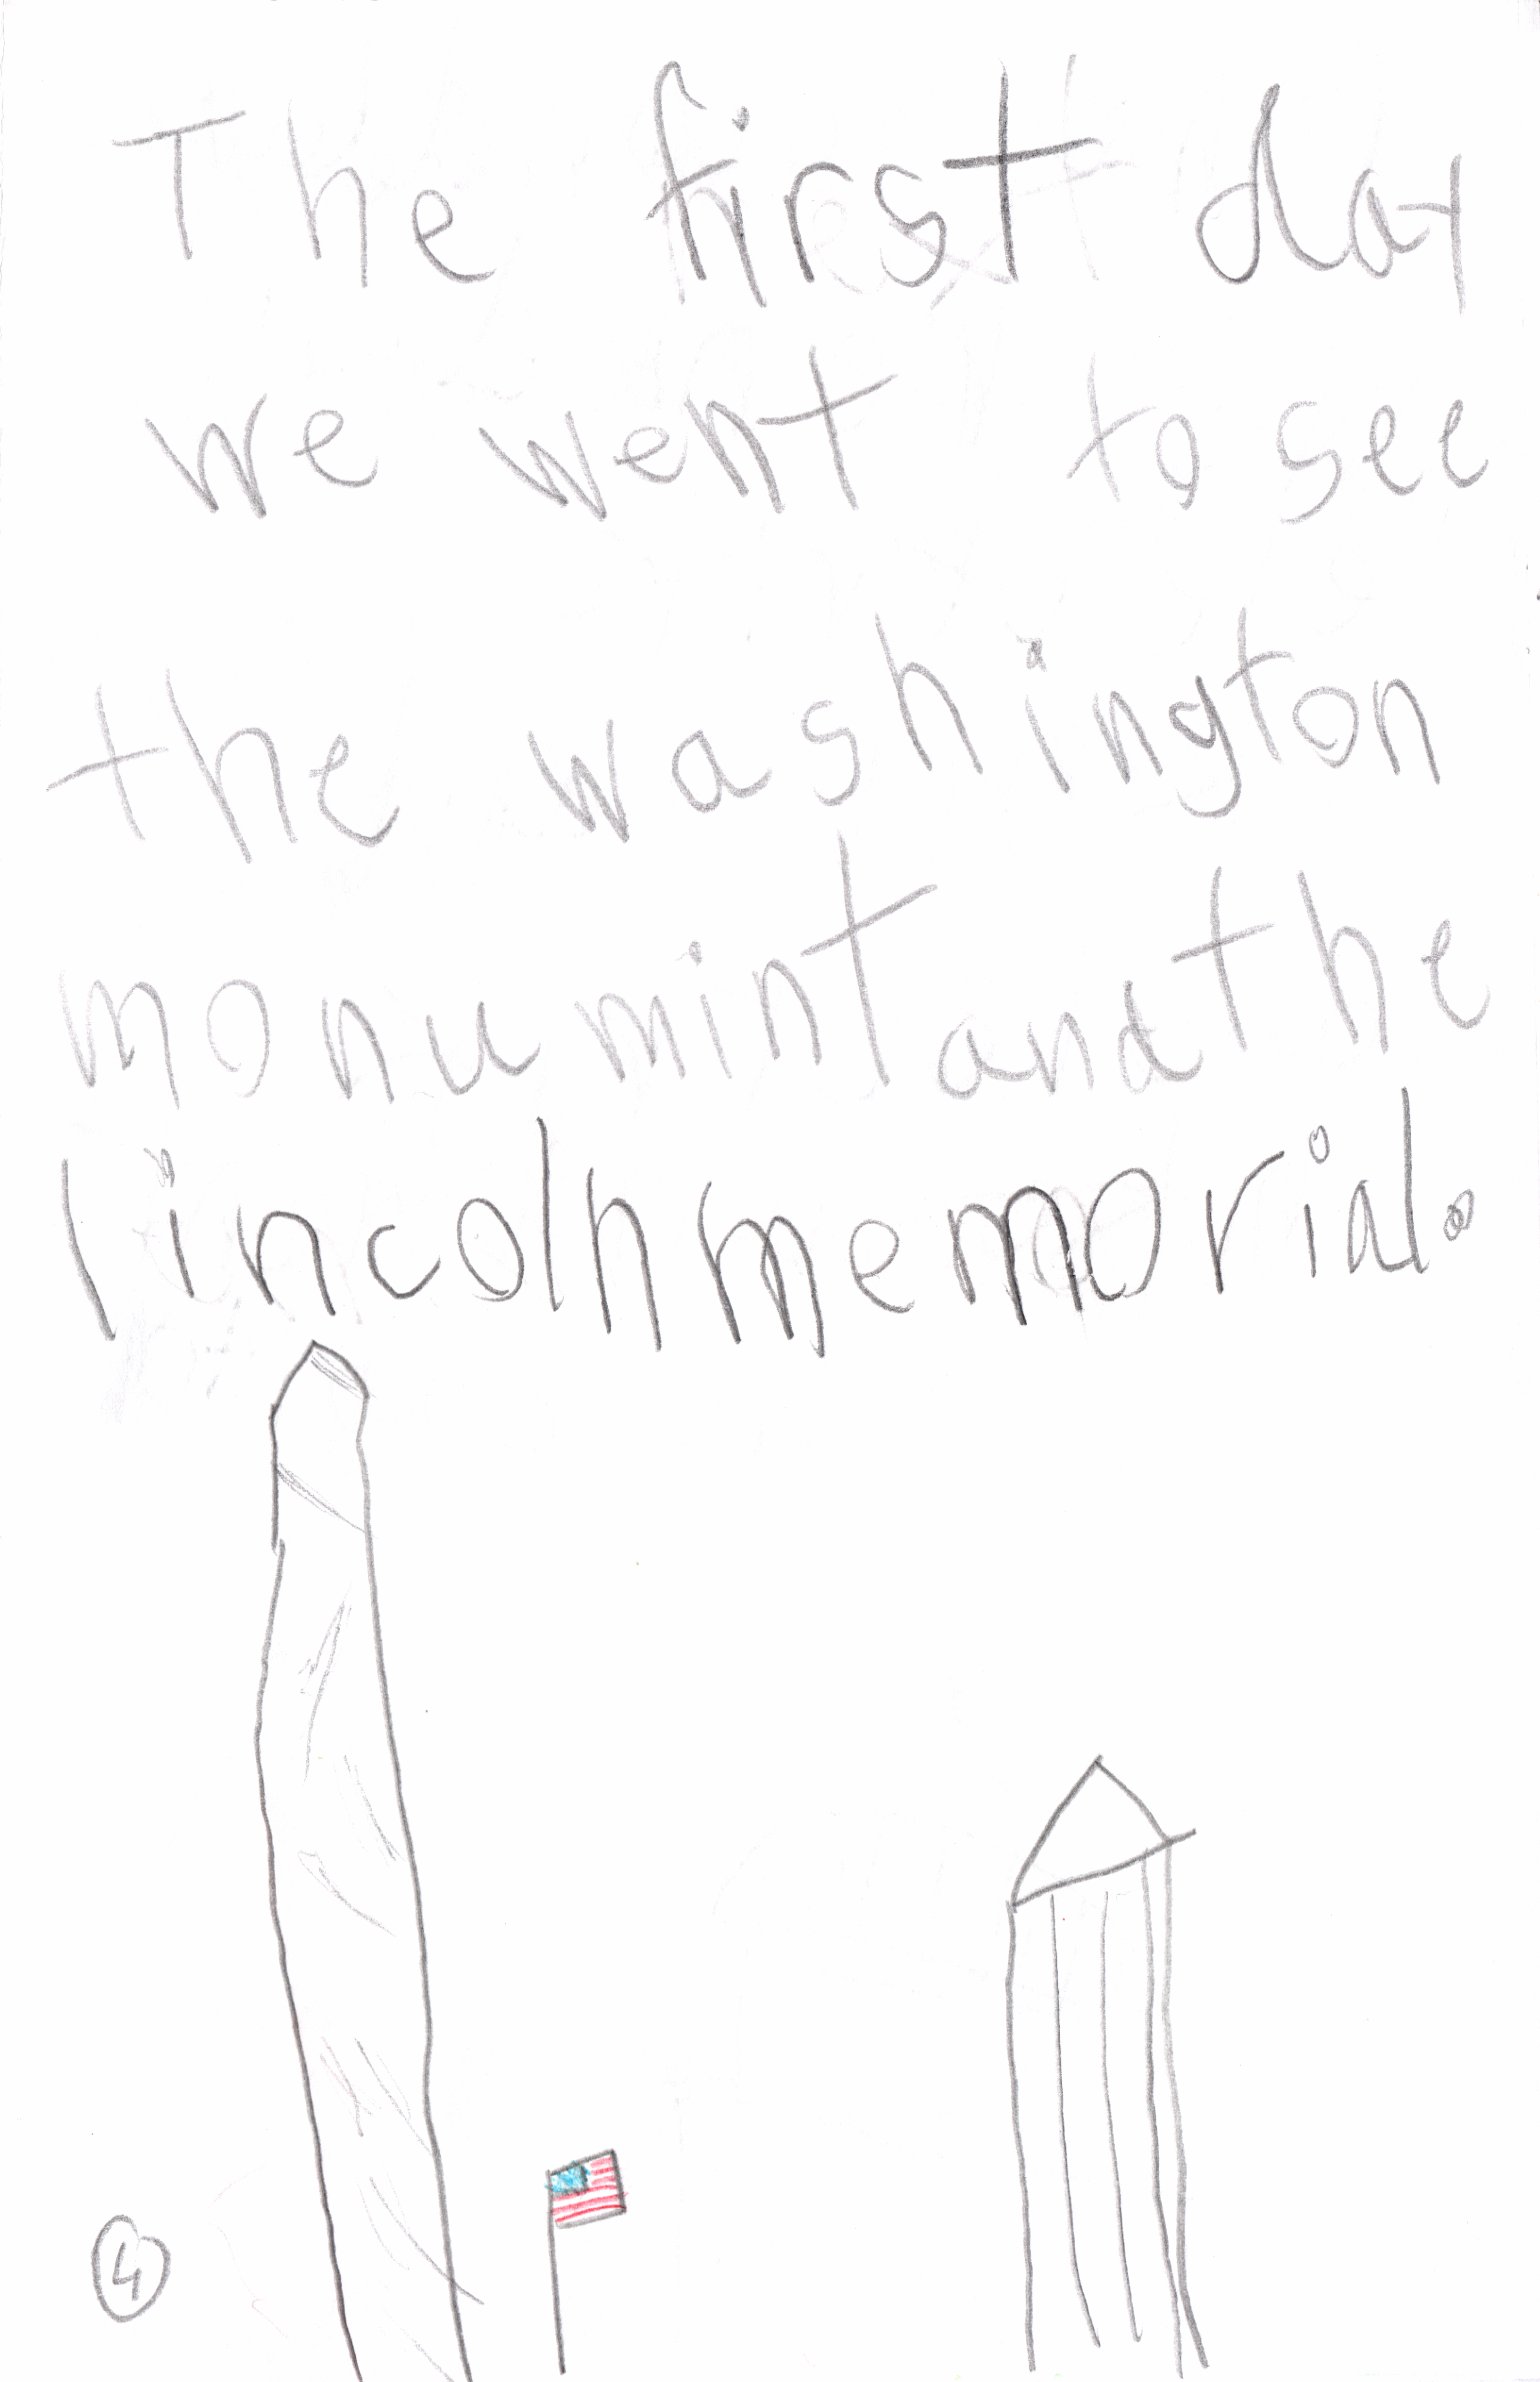 The first day
we went to see
the washington
monumint and the
lincoln memorial.
4